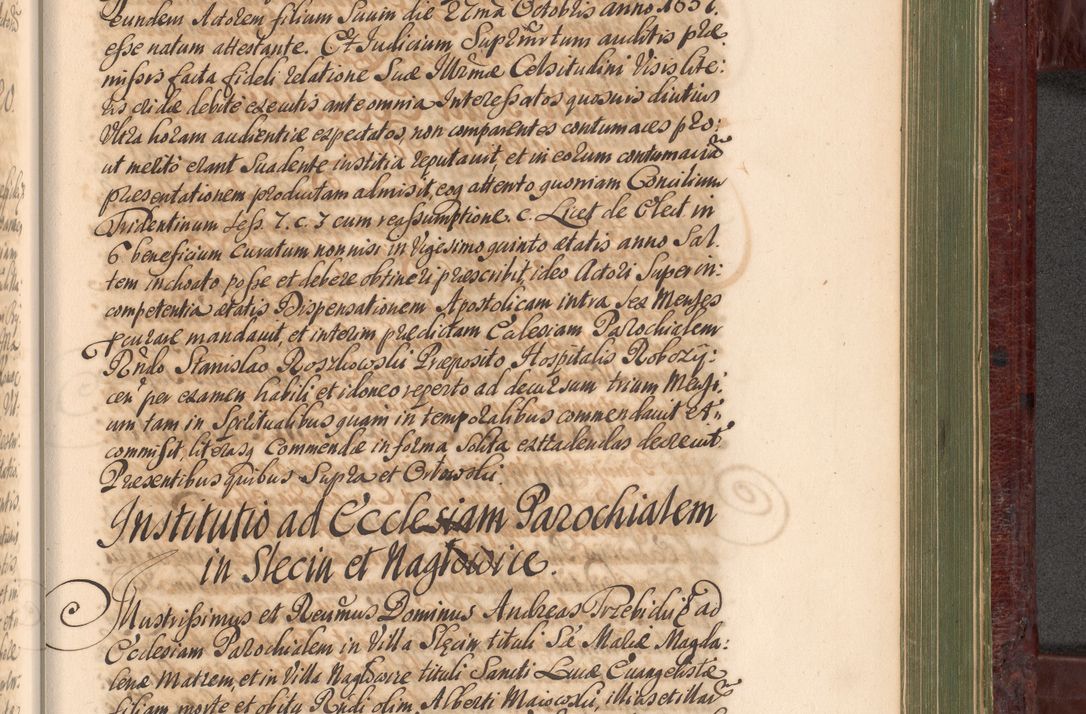 eundem Actorem filium Suum die 27ma Octobris anno 1657.
esse natum attestante. Et Judicium Suprm̃tum auditis præ
missis facta fideli relatione Suæ Illr̃mæ Celsitudini Visis lite:
ris cridæ debitè executis ante omnia Interessatos quosuis diutius
Vltra horam audientiæ expectatos, non comparentes contumaces pro:
ut meritò erant Suadente iustitia reputauit, et in eorum contumaciã
præsentationem productam admisit, eoq attento quoniam Concilium
Tridentinum Sess. 7. c. 3 cum reassumptione. c. Licet de Elect in
6 beneficium Curatum non nisi in Vigesimo quinto ætatis anno Sal
tem inchoato posse et debere obtineri præscribit, ideo Actori Super in:
competentia ætatis Dispensationem Apostolicam intra Sex Menses
pcurare mandauit, et interim prædictam Ecclesiam Parochialem
Rñdo Stanislao Roszkowskii Præposito Hospitalis Robozÿ:
ceñ per examen habili et idoneo reperto ad decursum trium Mensi
um tam in Spiritualibus quam in temporalibus commendauit et
commisit, literasq Commendæ in forma Solita extradendas decreuit
Præsentibus quibus Supra et Ortowskii.
Institutio ad Ecclesiam Parochialem
in Slecin et Nagłowice.
Illustrissimus et Reur̃mus Dominus Andreas Trzebicki ad
Ecclesiam Parochialem in Villa Slęcin tituli Sæ Mariæ Magda:
lenæ Matrem, et in Villa Nagłowice tituli Sancti Lucæ Euangelistæ
filiam morte et obitu Rñdi olim Alberti Maiowskii, illius et illarũ